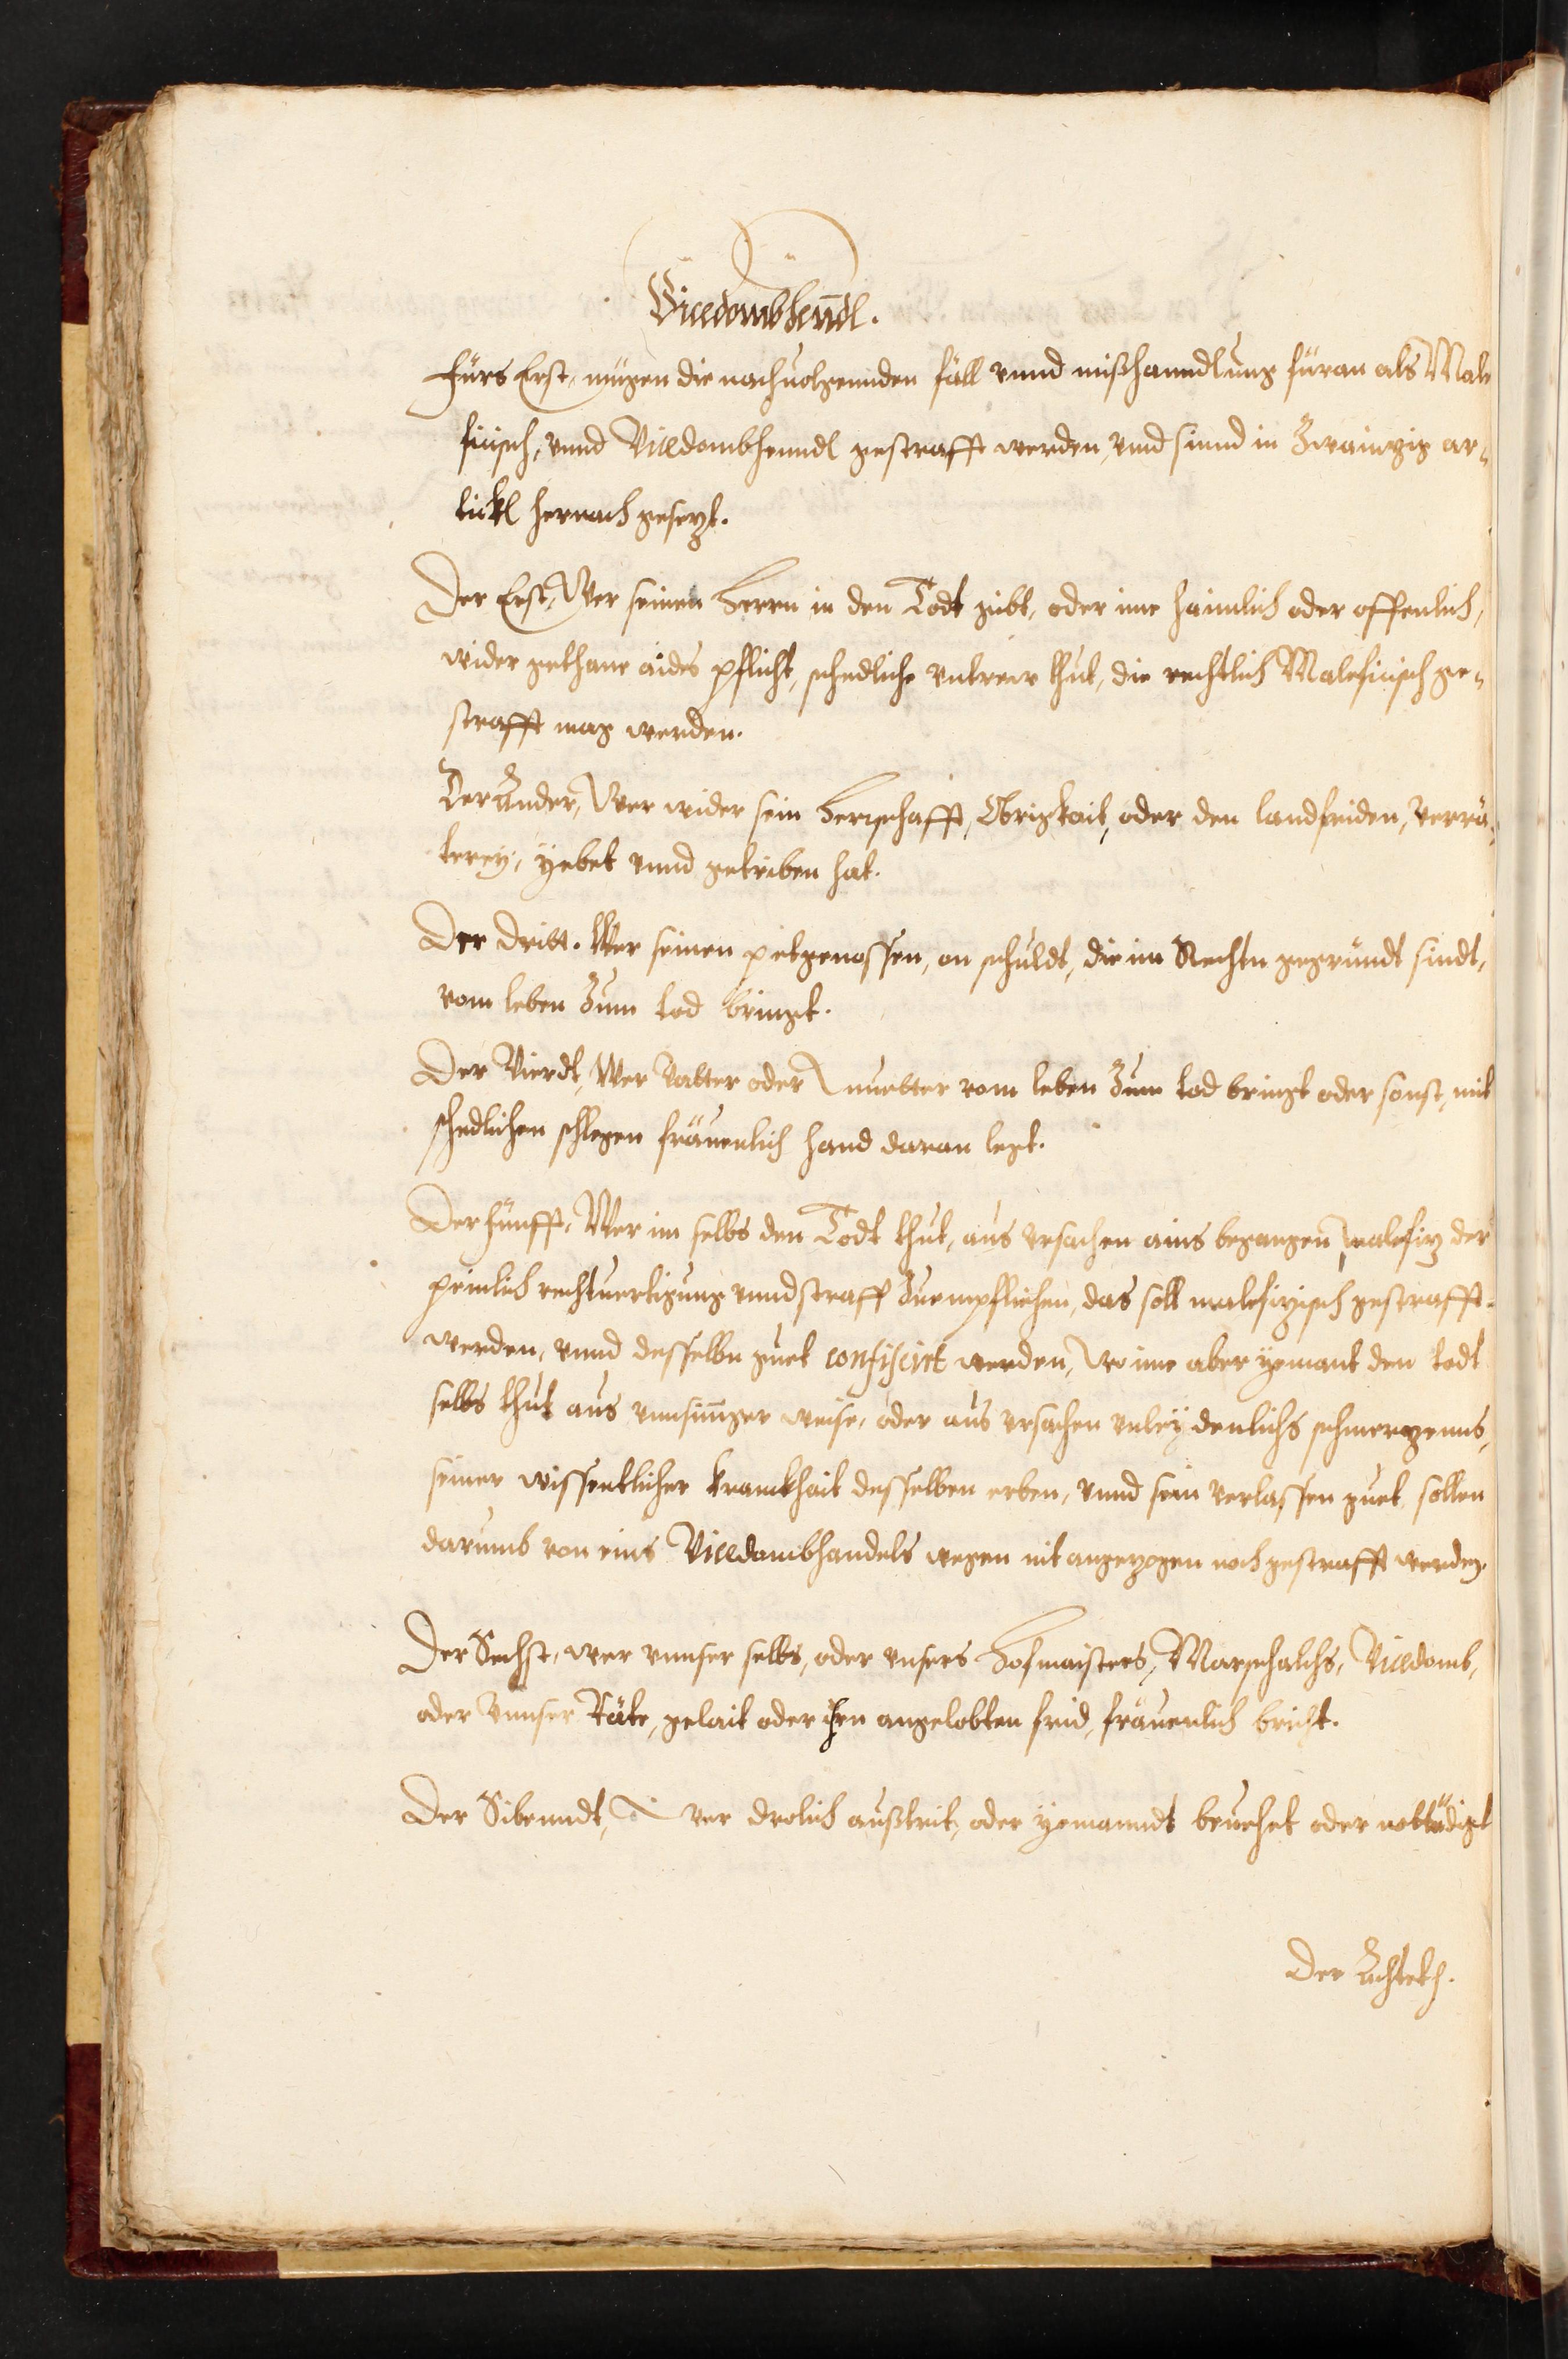 Vicedombhenndl.
Fürs Erst, mügen die nachuolgennden fäll vnnd mißhanndlung füran als Male
ficisch, vnnd Vicedombhenndl gestrafft werden, vnd sinnd in Zwainzig ar„
tickl hernach gesezt.
Der Erst, Wer seinen Herrn in den Todt gibt, oder ime haimlich oder offenlich,
wider gethane aides pflicht, schedliche vntrew thut, die rechtlich Maleficisch ge„
strafft mag werden.
Der Ander, Wer wider sein Herrschafft, Obrigkait, oder den landfriden, verrä„
terey, yebet vnnd getriben hat.
Der dritt. Wer seinen petgenossen, on schuldt, die im Rechtn gegründt sindt,
vom leben Zum tod bringt.
Der Vierdt, Wer Vatter oder muetter vom leben Zum tod bringt oder sonst, mit
schedlichen schlegen fräuenlich hand daran legt.
Der fünfft, Wer im selbs den Todt thut, aus vrsachen ains begangen malefiz der
peinlich rechtuertigung vnnd straff Zuempfliehen, das soll malefizisch gestrafft
werden, vnnd desselbn guet confiscirt werden, Wo ime aber yemant den todt
selbs thut aus vnnsinniger weise, oder aus vrsachen vnleydenlichs schmerzenns,
seiner wissentlicher kranckhait desselben erben, vnnd sein verlassen guet sollen
darumb von eins Vicedombhandels wegen nit angezogen noch gestrafft werden.
Der Sechst, wer vnnser selbs, oder vnsers Hofmaisters, Marschalchs, Vicedomb,
oder Vnnser Räte, gelait oder den angelobten frid, fräuenlich bricht.
Der Sibenndt, Wer drolich außtrit, oder yemanndt beuehet oder nottädigt
Der Achtet.